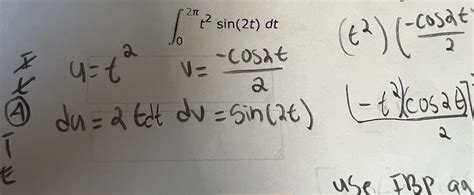 ∫₀^{2π} t² sin(2t) dt
I
L
A
T
E
u = t²
v = -cos2t / 2
du = 2tdt
dv = sin(2t)
(t²)(-cos2t / 2
(-t²)(cos2t) / 2
use IBP